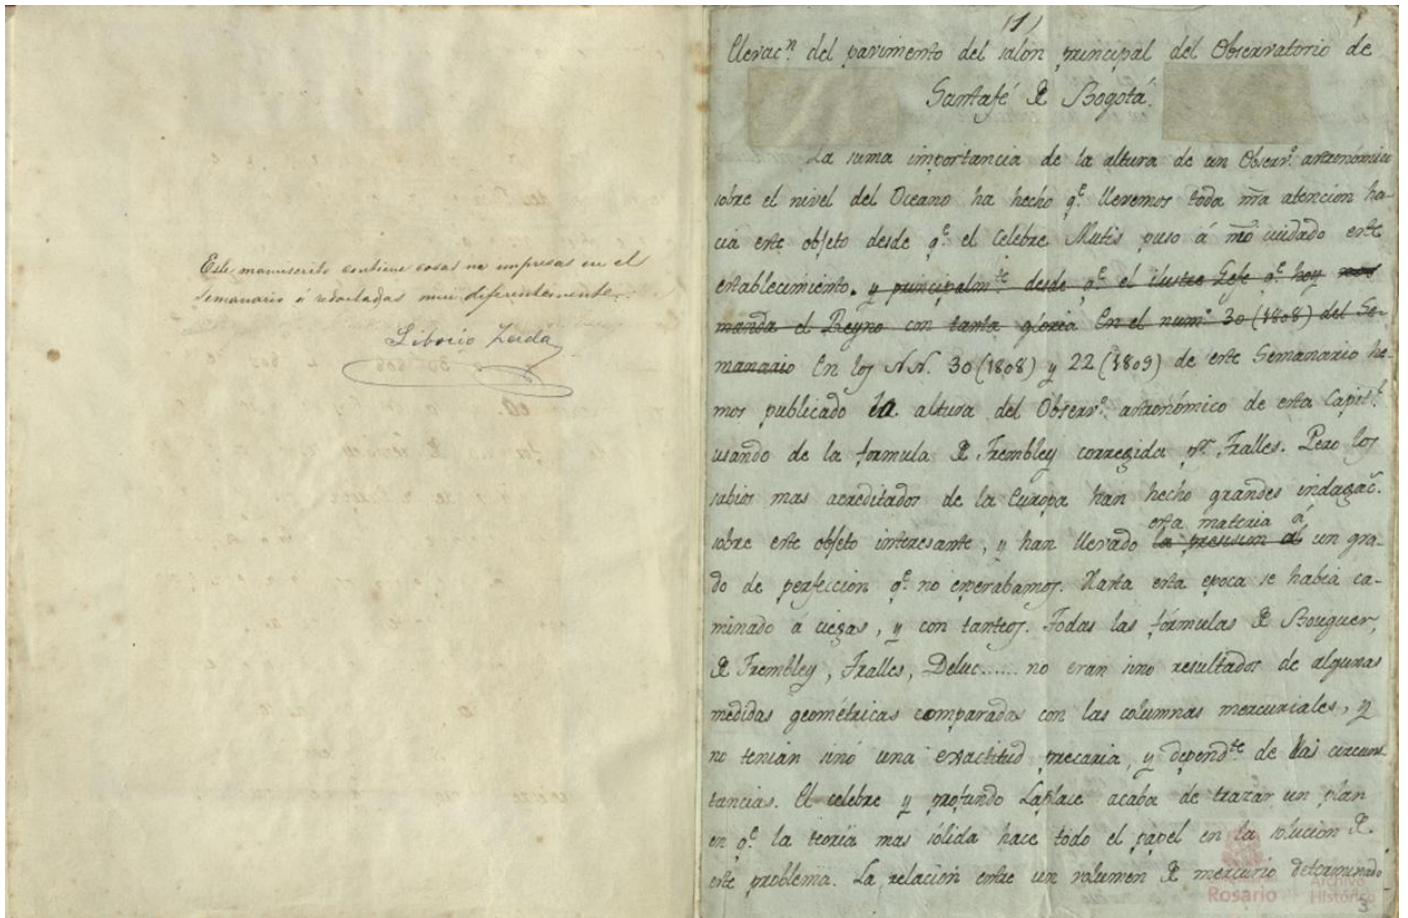 Este manuscrito contiene cosas no impresas en el
Semanario ó redactadas mui diferentemente.
Liborio Zerda
(1)
Elevacn. del pavimento del salón principal del Observatorio de
Santafé de Bogotá.
La suma importancia de la altura de un Observo. astronómico
sobre el nivel del Oceano ha hecho qe. llevemos toda nra atencion ha-
cia este objeto desde qe. el celebre Mutis puso á nro cuidado este
establecimiento. y principalmte. desde qe. el ilustre Gefe qe. hoy nos
manda el Reyno con tanta gloria En el numo. 30 (1808) del Se-
manario En los NN. 30 (1808) y 22 (1809) de este Semanario he-
mos publicado la altura del Observo. astronómico de esta Capitl.
usando de la formula de Trembley corregida pr. Tralles. Pero los
sabios mas acreditados de la Europa han hecho grandes indagac.
esta materia á
sobre este objeto interesante, y han llevado la precision al un gra-
do de perfeccion qe. no esperabamos. Hasta esta epoca se habia ca-
minado á ciegas, y con tanteos. Todas las fórmulas de Bouguer,
de Trembley, Tralles, Deluc...... no eran sino resultados de algunas
medidas geométricas comparadas con las columnas mercuriales, y
no tenian sinó una exactitud precaria, y dependte. de las circuns-
tancias. El celebre y profundo Laplace acaba de trazar un plan
en qe. la teoría mas sólida hace todo el papel en la solucion de
este problema. La relacion entre un volumen de mercurio determinado
Rosario
Archivo
Histórico
3